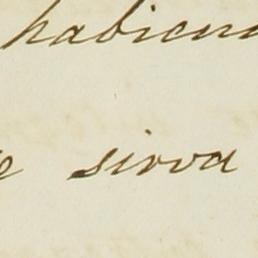 habiend
e sirva